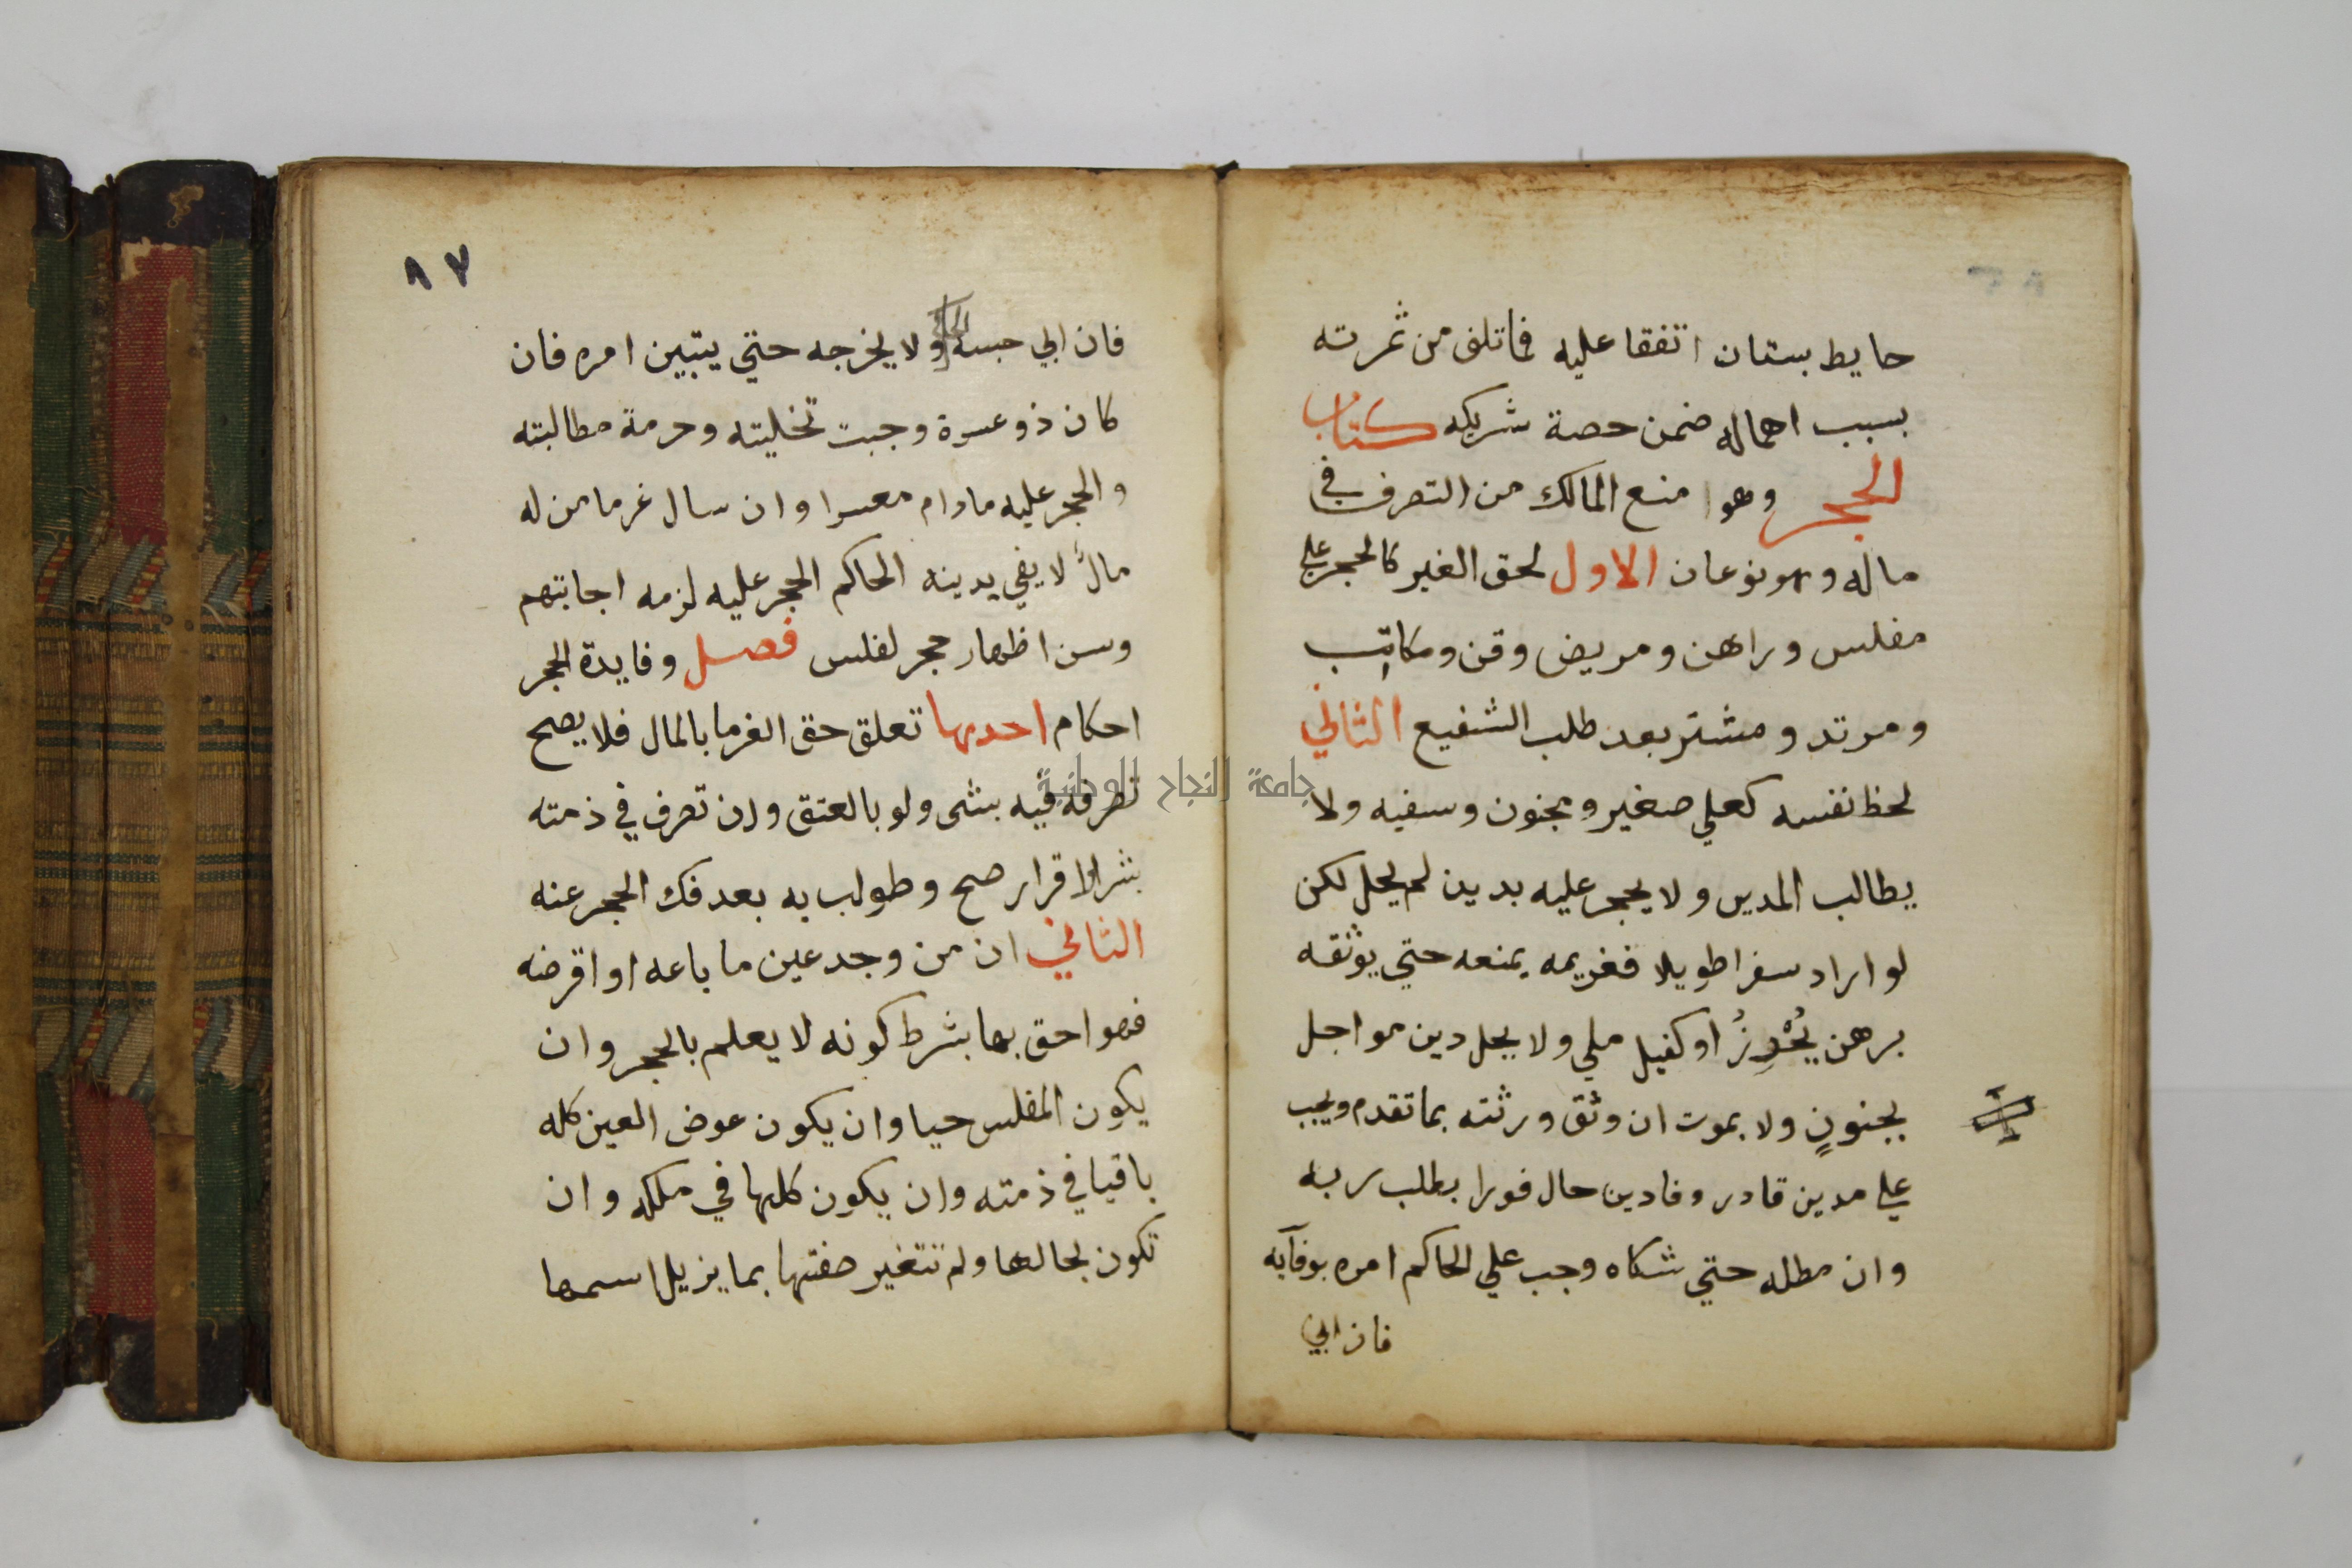 حايط بستان اتفقا عليه فما تلف من ثمرته
بسبب اهماله ضمن حصة شريكه كتاب
الحجر وهوا منع المالك من التصرف في
ماله وهو نوعان الاول لحق الغير كالحجر علي
مفلس وراهن ومريض وقن ومكاتب
ومرتد ومشتر بعد طلب الشفيع الثاني
لحظ نفسه كعلي صغير ومجنون وسفيه ولا
يطالب المدين ولا يحجر عليه بدين لم يحل لكن
لو اراد سفرا طويلا فغريمه يمنعه حتي يوثقه
برهن يُحْرِزُ او كفيل ملي ولا يحل دين مواجل
بجنونٍ ولا بموت ان وثق ورثته بما تقدم ويجب
علي مدين قادر وفا دين حال فورا بطلب ربه
وان مطله حتي شكاه وجب علي الحاكم امره بوفآيه
فان ابي
٨٧
فان ابي حبسه ولا يخرجه حتي يتبين امره فان
كان ذو عسرة وجبت تخليته وحرمة مطالبته
والحجر عليه مادام معسرا وان سال غرما من له
مالٌ لا يفي بدينه الحاكم الحجر عليه لزمه اجابتهم
وسن اظهار حجر لفلس فصل وفايدة الحجر
احكام احدها تعلق حق الغرما بالمال فلا يصح
تصرفه فيه بشي ولو بالعتق وان تصرف في ذمته
بشرا الاقرار صح وطولب به بعد فك الحجر عنه
الثاني ان من وجد عين ما باعه او اقرضه
فهو احق بها بشرط كونه لا يعلم بالحجر وان
يكون المفلس حيا وان يكون عوض العين كله
باقيا في ذمته وان يكون كلها في ملكه وان
تكون بحالها ولم تتغير صفتها بما يزيل اسمها
جامعة النجاح الوطنية